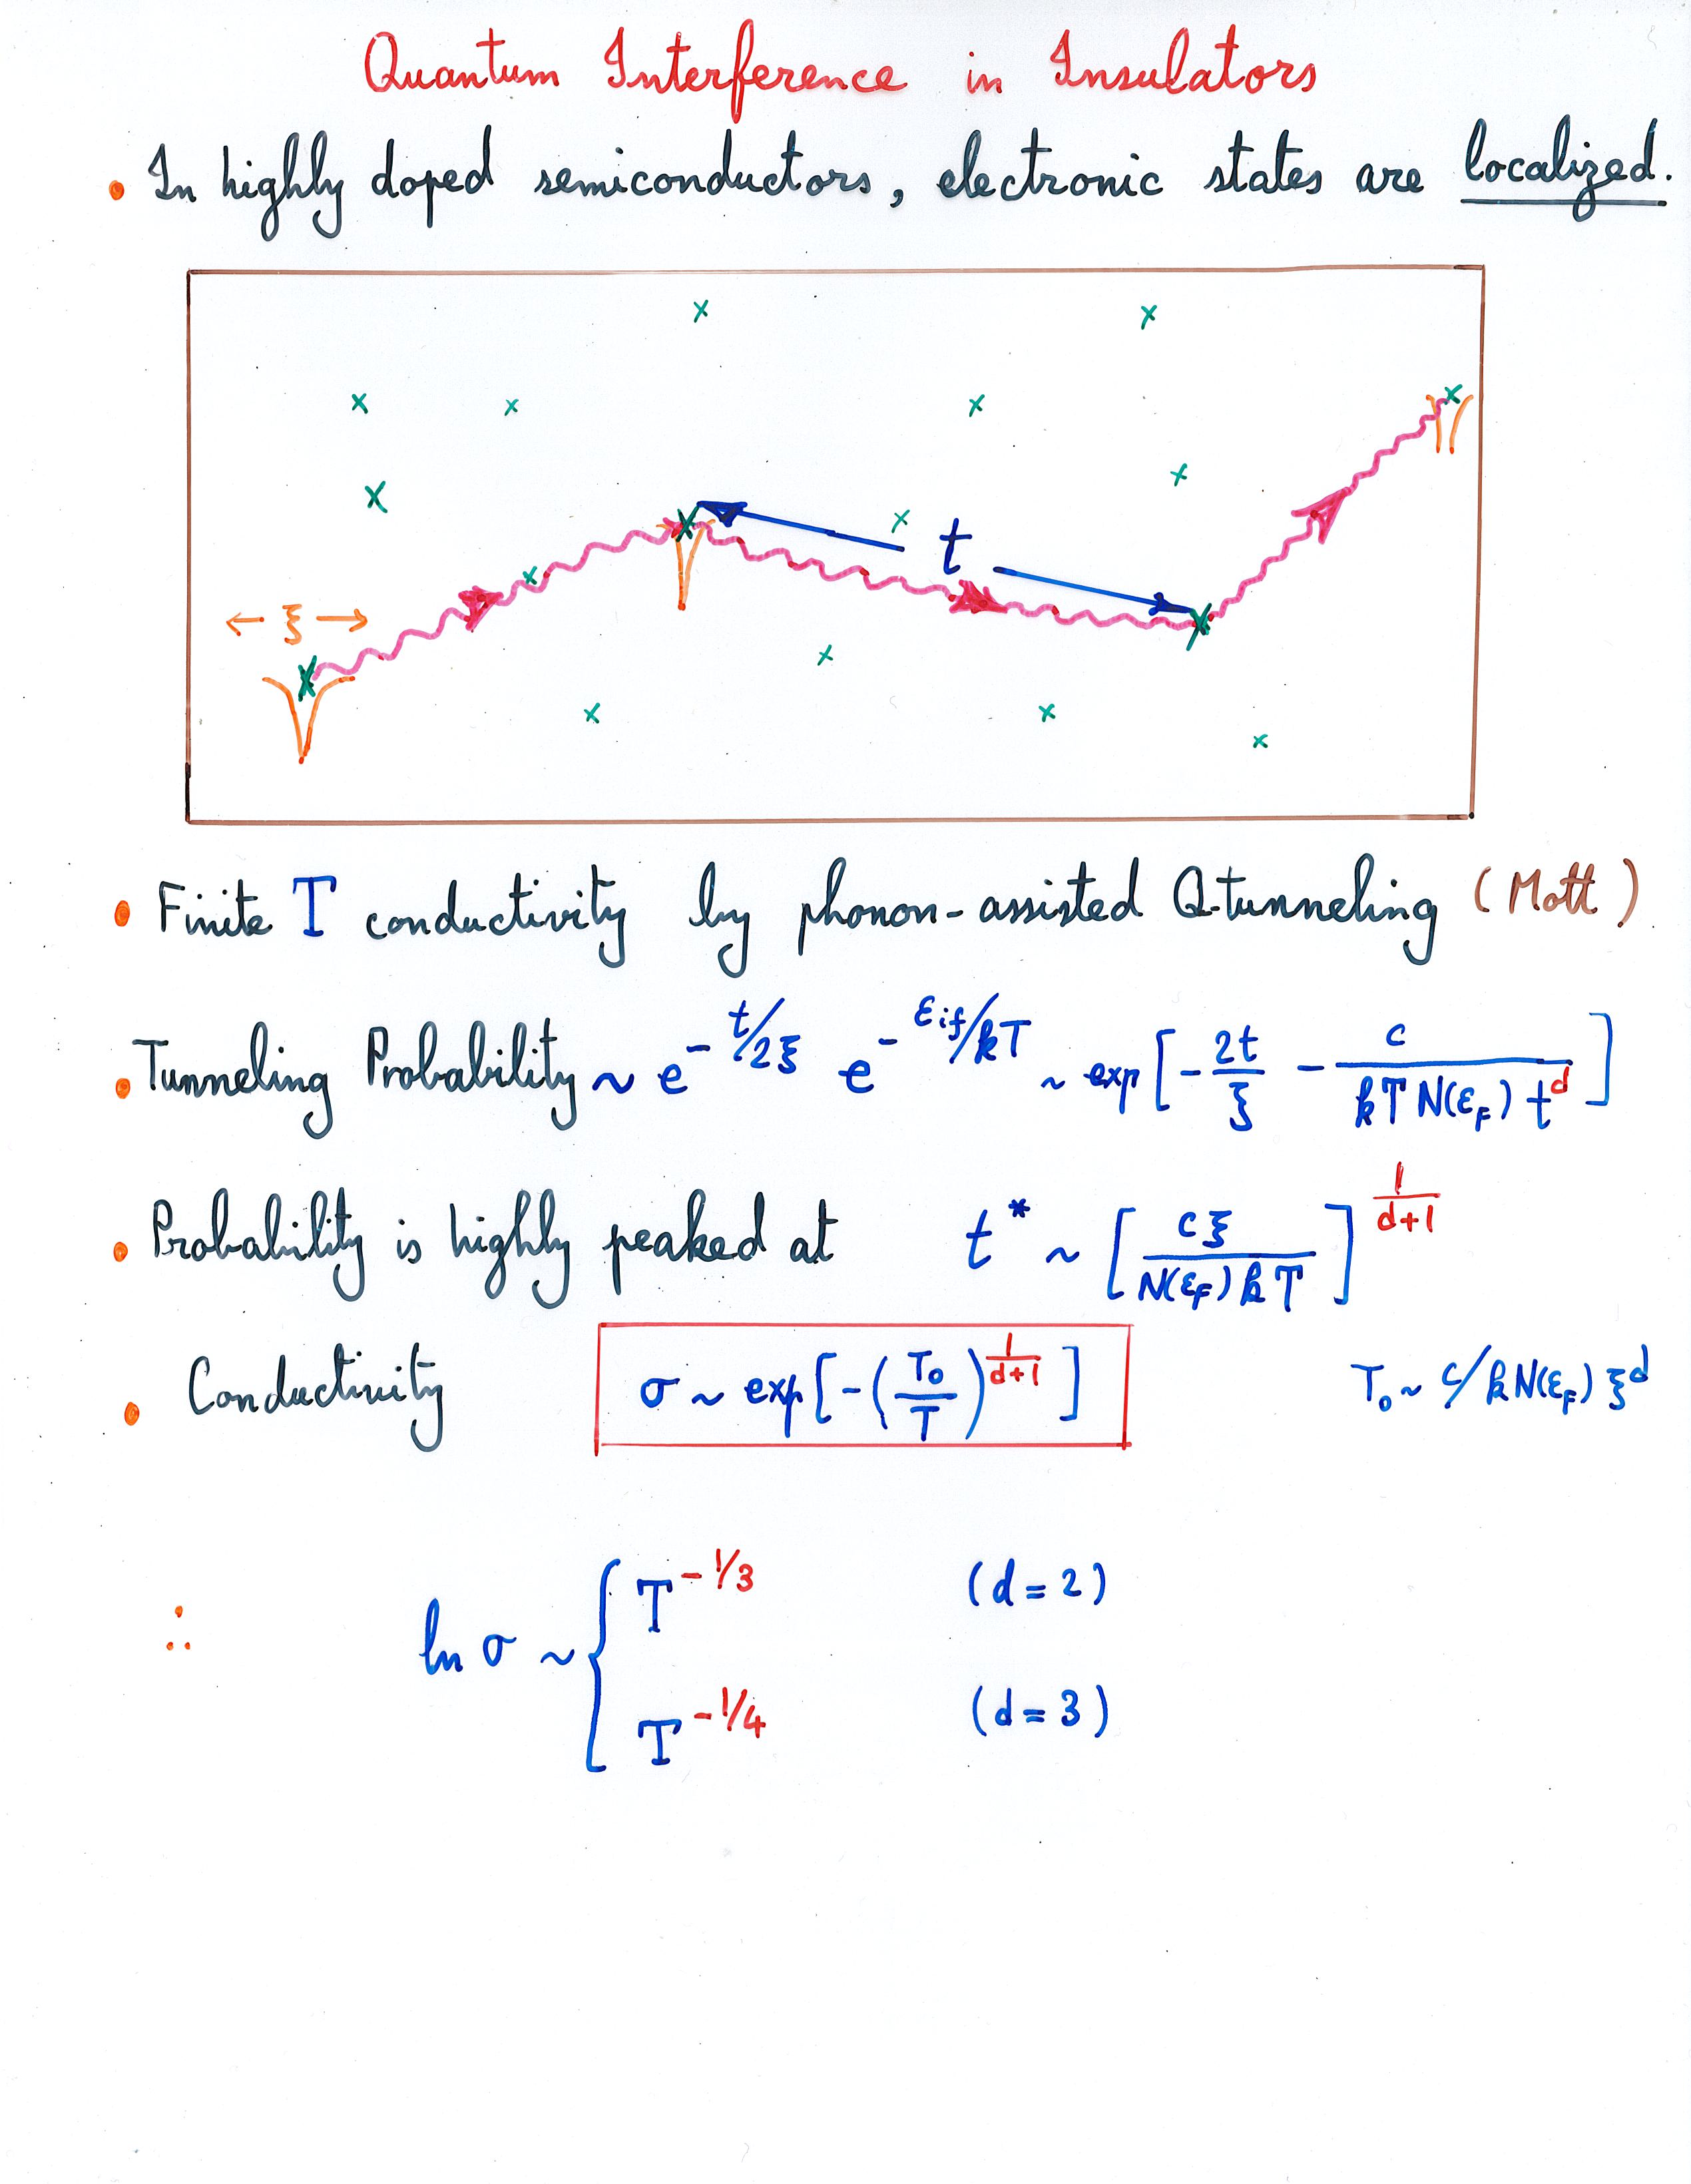 Quantum Interference in Insulators
• In highly doped semiconductors, electronic states are localized.
t
← ξ →
• Finite T conductivity by phonon-assisted Q-tunneling (Mott)
• Tunneling Probability ~ e^{- t/2ξ} e^{- ε_{if}/kT} ~ exp[ - 2t/ξ - c/(kT N(ε_F) t^d) ]
• Probability is highly peaked at t* ~ [ cξ / N(ε_F) kT ]^{1/(d+1)}
• Conductivity σ ~ exp[ -(T₀/T)^{1/(d+1)} ] T₀ ~ c/kN(ε_F) ξ^d
∴ ln σ ~ { T^{-1/3} (d = 2)
T^{-1/4} (d = 3)